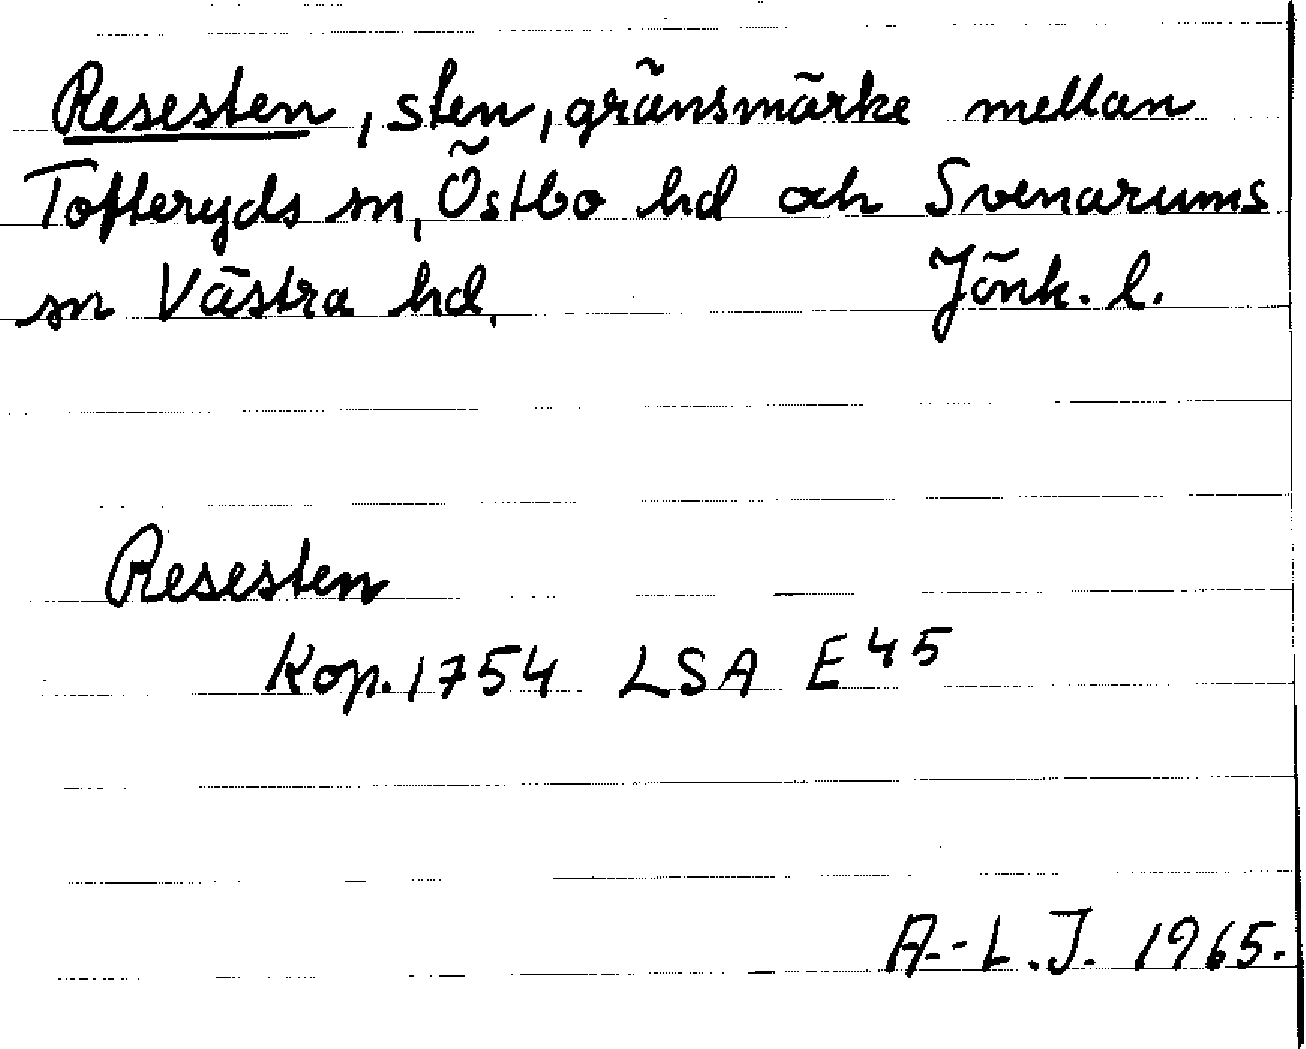 Resesten, sten, gränsmärke mellan
Tofteryds sn, Östbo hd och Svenarums
sn Västra hd. Jönk. l.
Resesten
Kop. 1754 LSA E 45
A.-L.J. 1965.